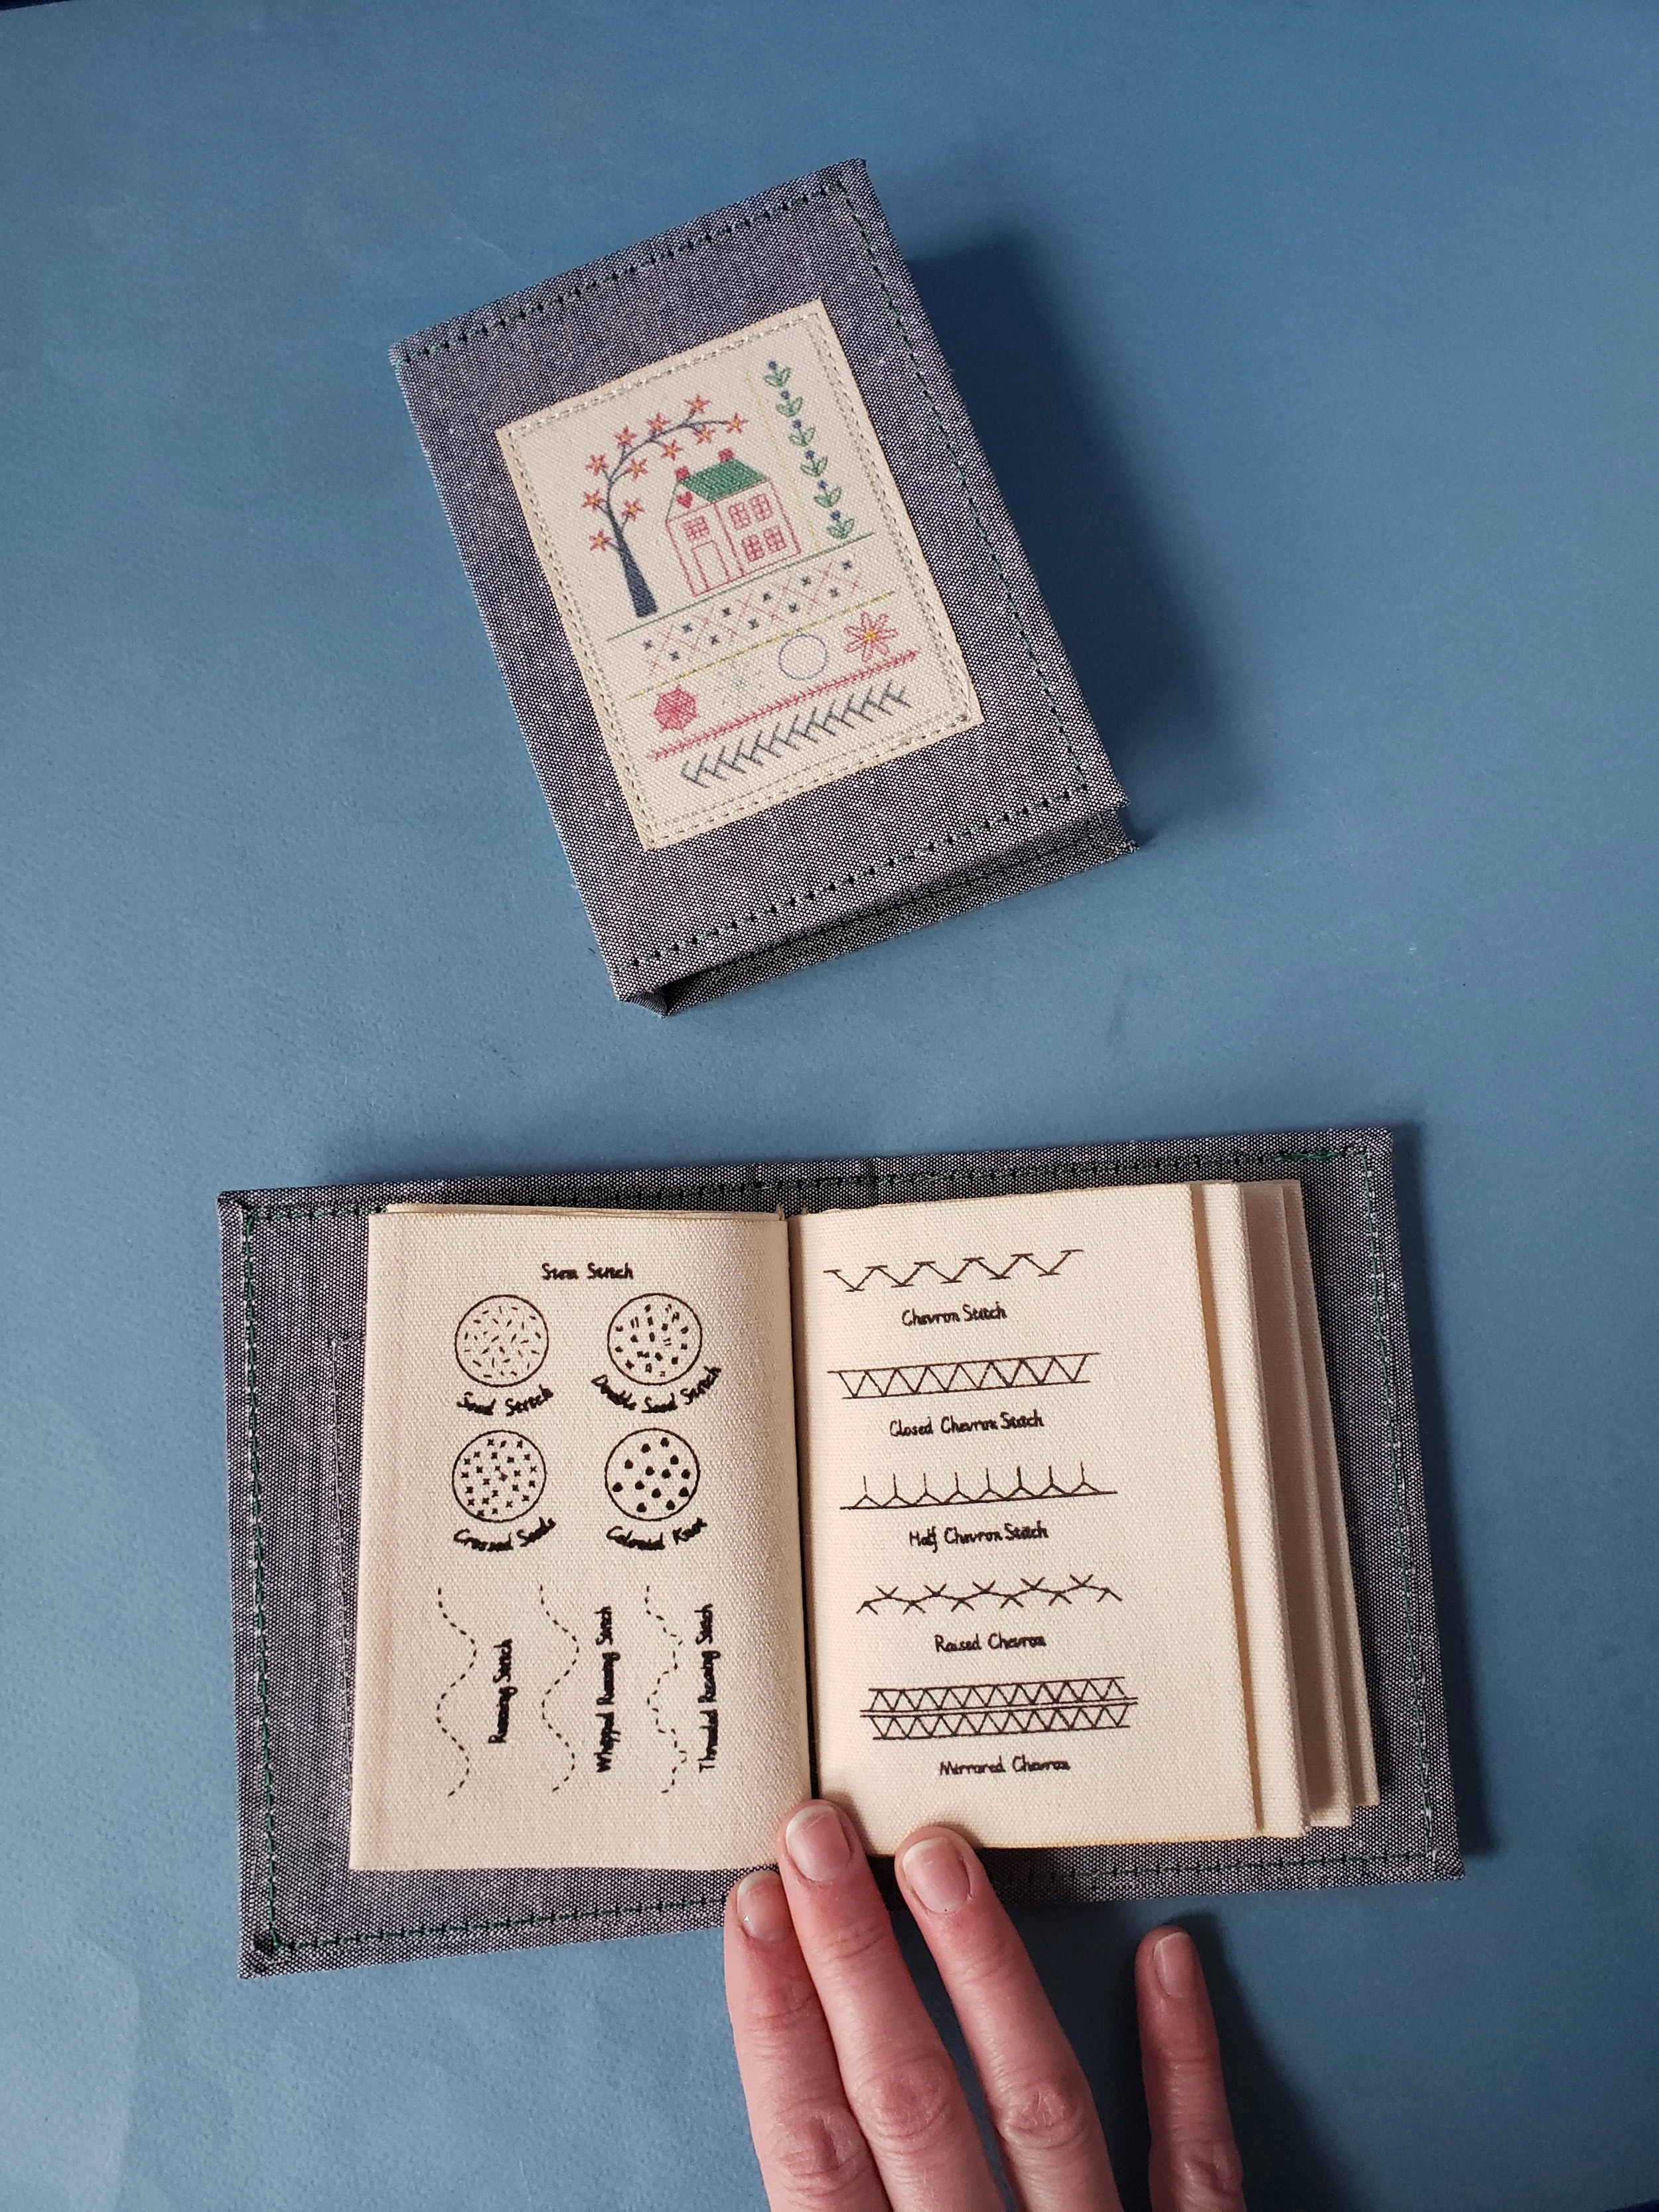 Stem Stitch
Seed Stitch
Double Seed Stitch
Crossed Seeds
Colonial Knot
Running Stitch
Whipped Running Stitch
Threaded Running Stitch
Chevron Stitch
Closed Chevron Stitch
Half Chevron Stitch
Raised Chevron
Mirrored Chevron